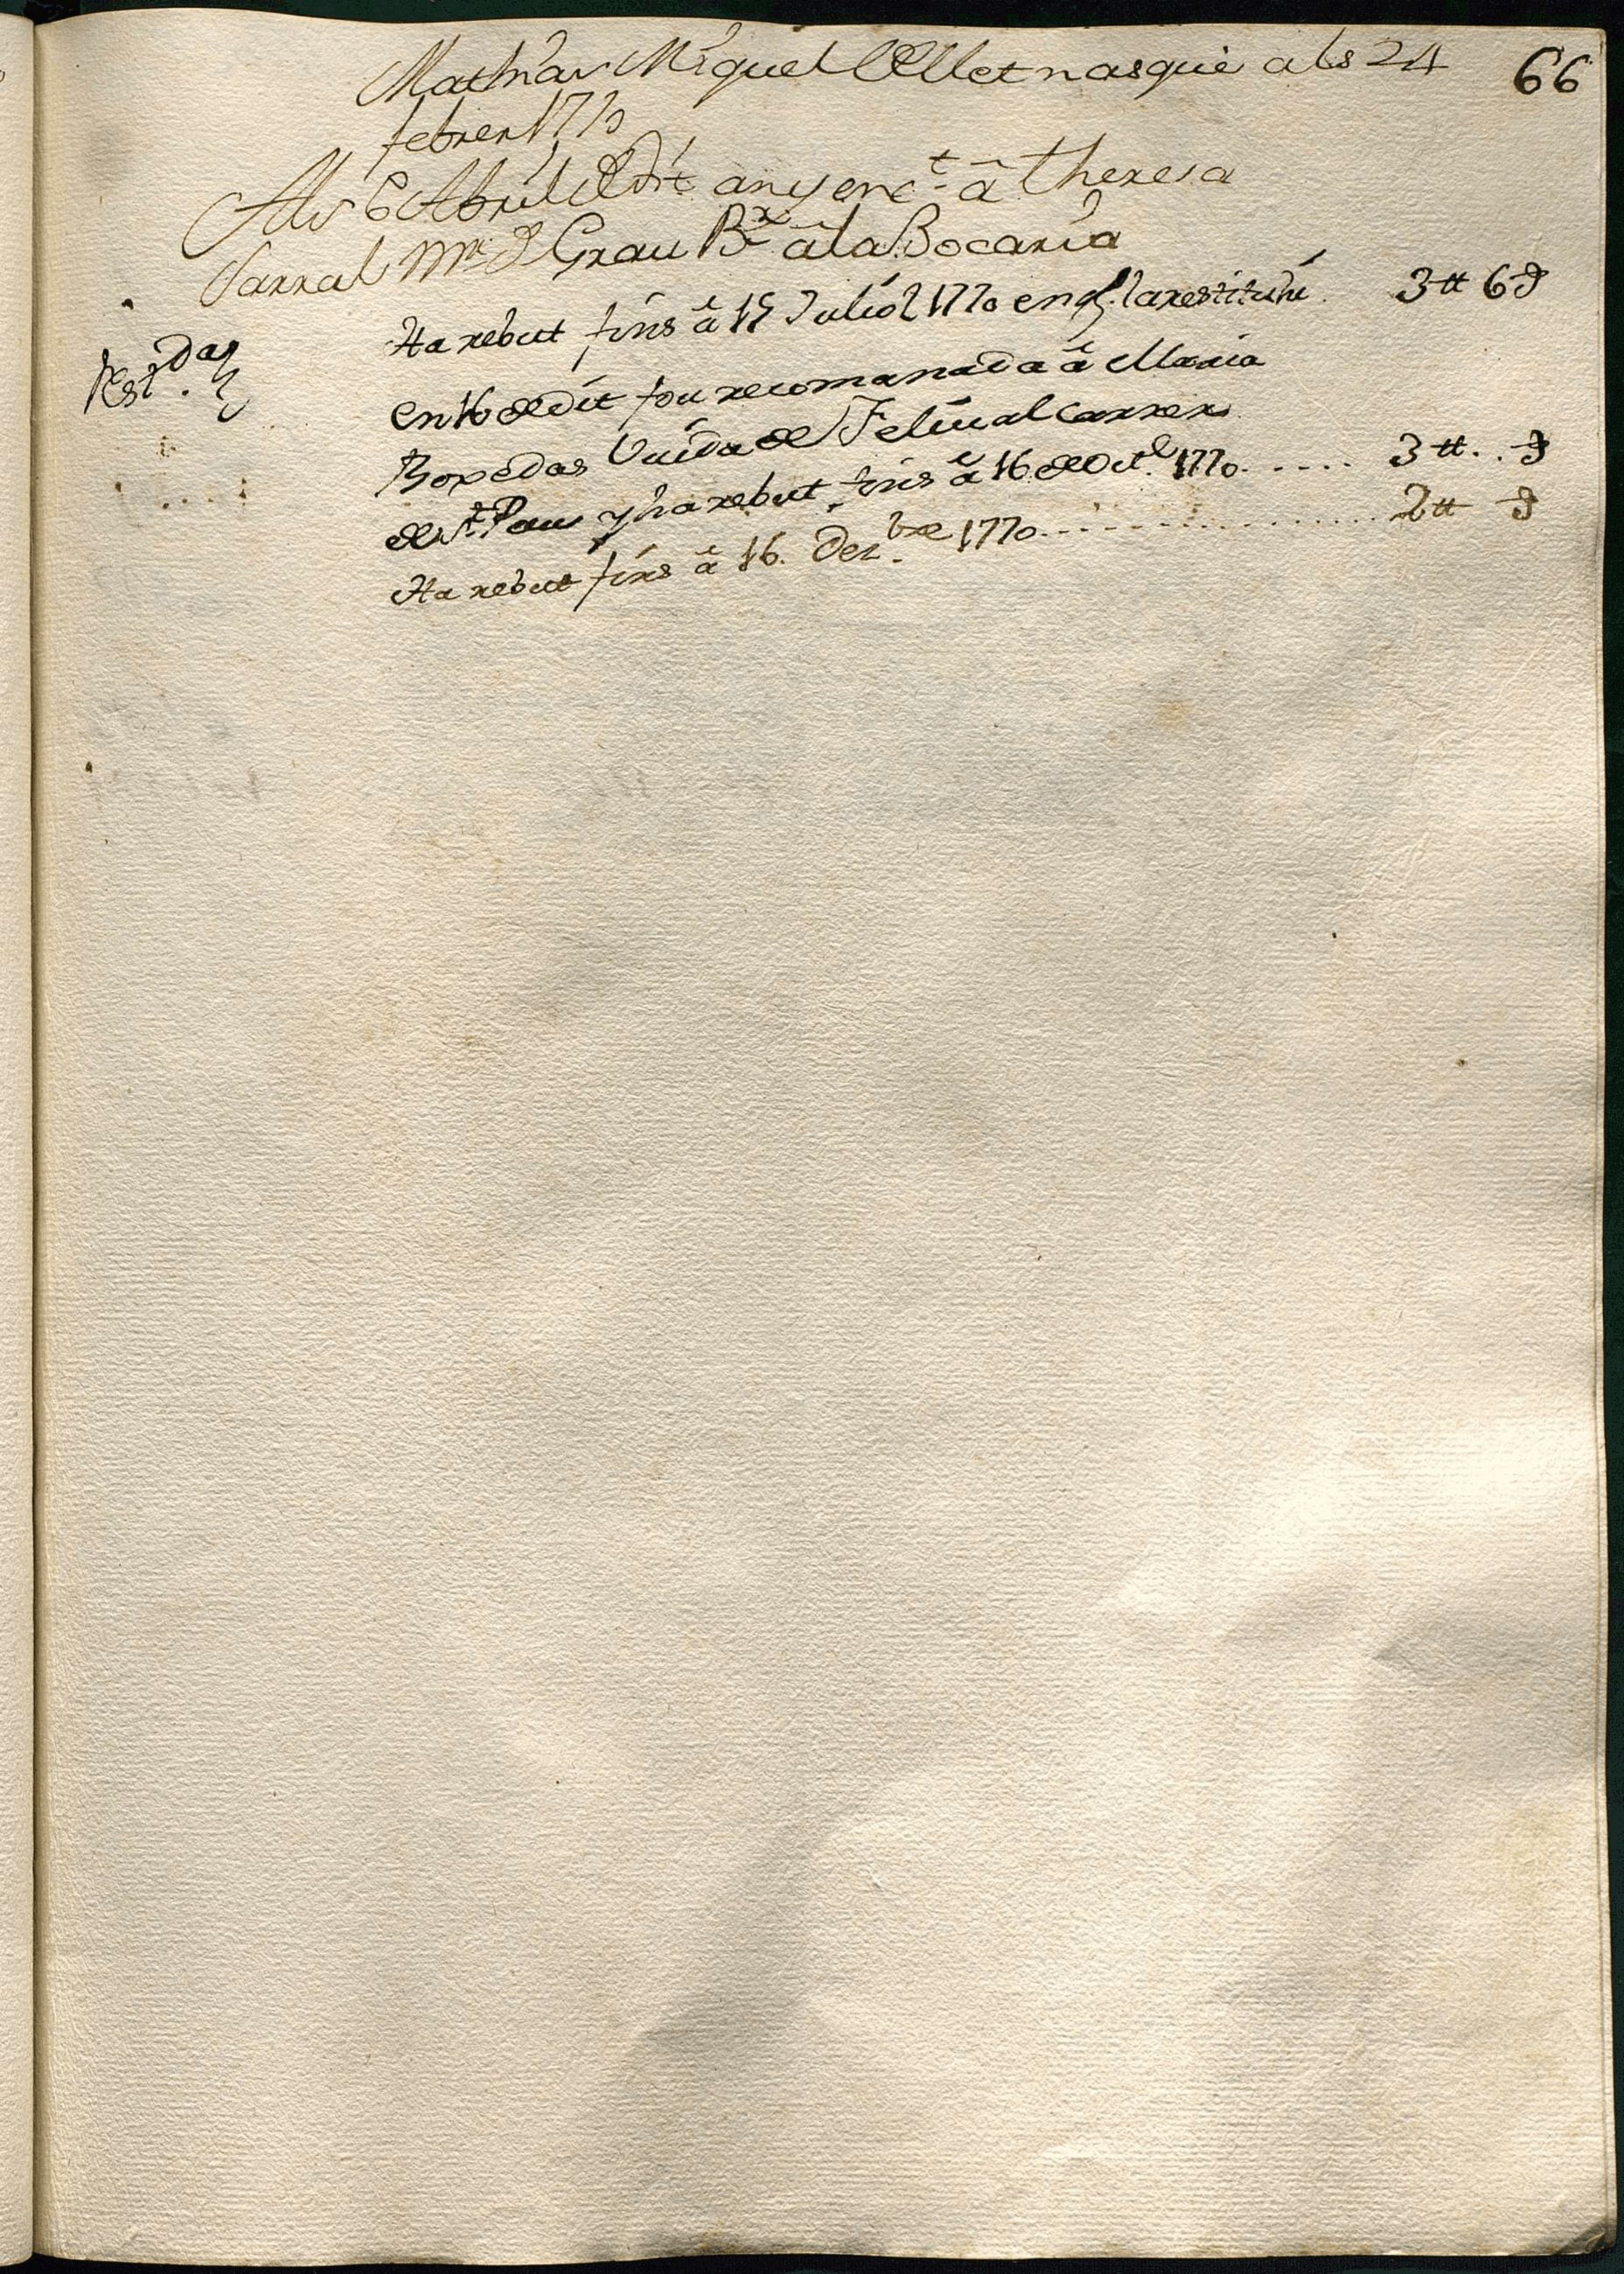 66
Mathias Miquel Ollet nasqué als 24
febrer 1770
Als 6 Abril de dit any enc.t â Theresa
Sarral Mr. d Grau Bx â la Bocaria
Ha rebut fins â 15 Juliol 1770 en q. la restituhí. 3 ₶ 6 ₰
Rest.da
en 16 de dit fou recomanada â Maria
Boxedas Viuda de Feliu al carrer
de St. Pau y ha rebut fins â 16 de Oct.e 1770 ..... 3 ₶ .. ₰
Ha rebut fins â 16. Dez.bre 1770 ................ 2 ₶ ₰